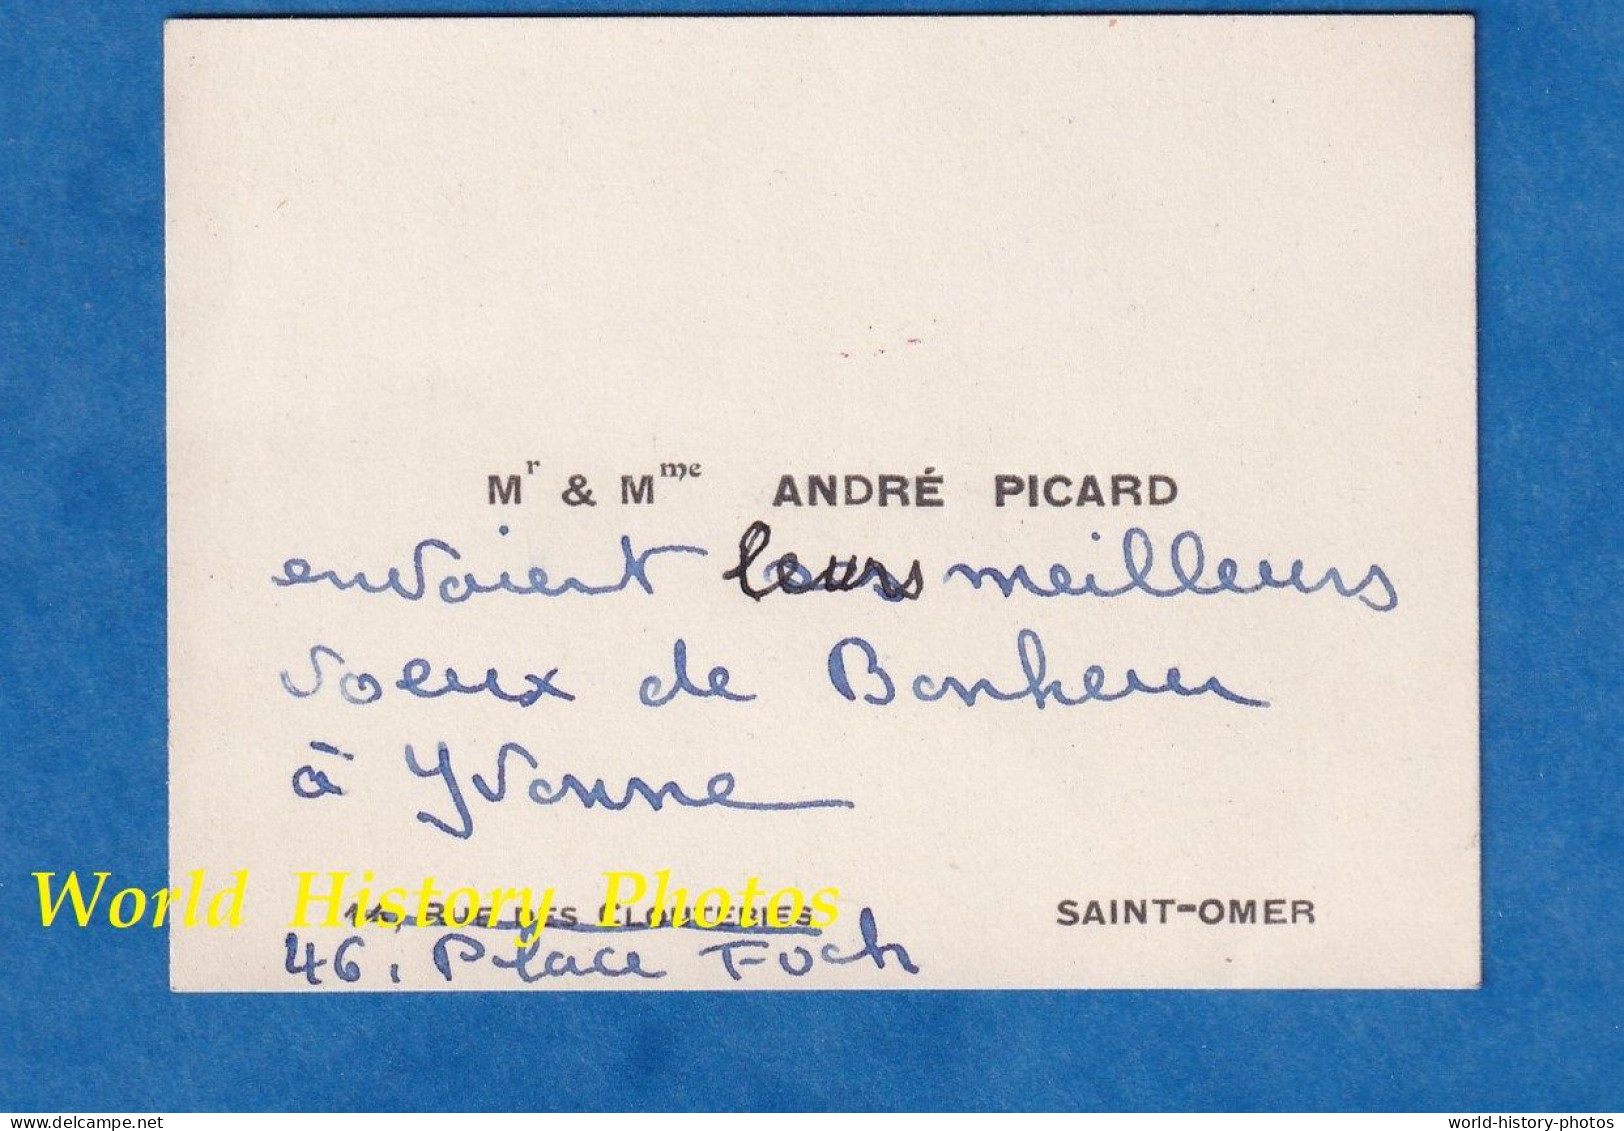 Mr & Mme ANDRÉ PICARD
envoient leurs meilleurs
voeux de Bonheur
à Yvonne
World History Photos
RUE DES CLOUTERIES SAINT-OMER
46, Place Foch
world-history-photos